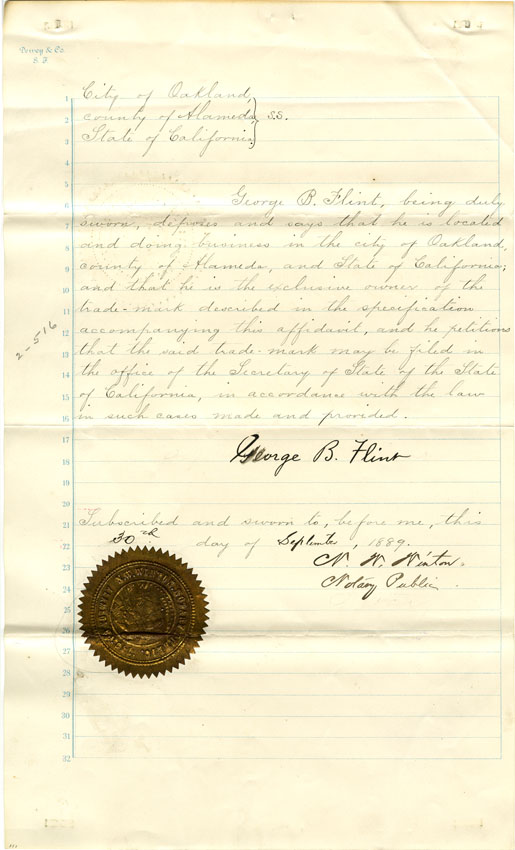 Dewey & Co.
S. F.
1 City of Oakland,
2 county of Alameda } S.S.
3 State of California.
4
5
6 George B. Flint, being duly
7 sworn, deposes and says that he is located
8 and doing business in the city of Oakland,
9 county of Alameda, and State of California;
10 and that he is the exclusive owner of the
11 trade-mark described in the specification
12 accompanying this affidavit, and he petitions
13 that the said trade-mark may be filed in
14 the office of the Secretary of State of the State
15 of California, in accordance with the law
16 in such cases made and provided.
17
18 George B. Flint
19
20
21 Subscribed and sworn to, before me, this
22 30th day of September, 1889.
23 N. W. Winton.
24 Notary Public
25
26
27
28
29
30
31
32
2-516